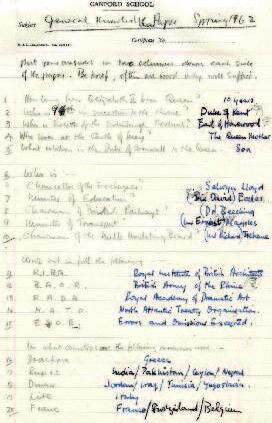 CANFORD SCHOOL
Subject General Knowledge Paper Spring 1962
Put your answers in two columns down each side
of the paper. Be brief, often one word only will suffice.
1 How long has Elizabeth II been Queen? 10 years
2 Who is 9th in succession to the throne Duke of Kent
3 Who is Director of the Edinburgh Festival? Earl of Harewood
4 Who is the The Queen Mother
5 What relation is the Duke of Cornwall to the Queen Son
Who is —
6 Chancellor of the Exchequer? Selwyn Lloyd
7 Minister of Education? (Sir David) Eccles
8 Chairman of British Railways? (Dr) Beeching
9 Minister of Transport (Mr Ernest) Marples
10 Chairman of the North Board? (Sir Richard)
Write out in full the following
11 R.I.B.A. Royal Institute of British Architects
12 B.A.O.R. British Army of the Rhine
13 R.A.D.A Royal Academy of Dramatic Art
14 N.A.T.O North Atlantic Treaty Organisation.
15 E.&O.E. Errors and Omissions Excepted.
In what countries are the following currencies used —
16 Drachma Greece
17 Rupee India/Pakistan/Ceylon/Nepal
18 Dinar Jordan/Iraq/Tunisia/Yugoslavia.
19 Lire Italy
20 Franc France/Switzerland/Belgium